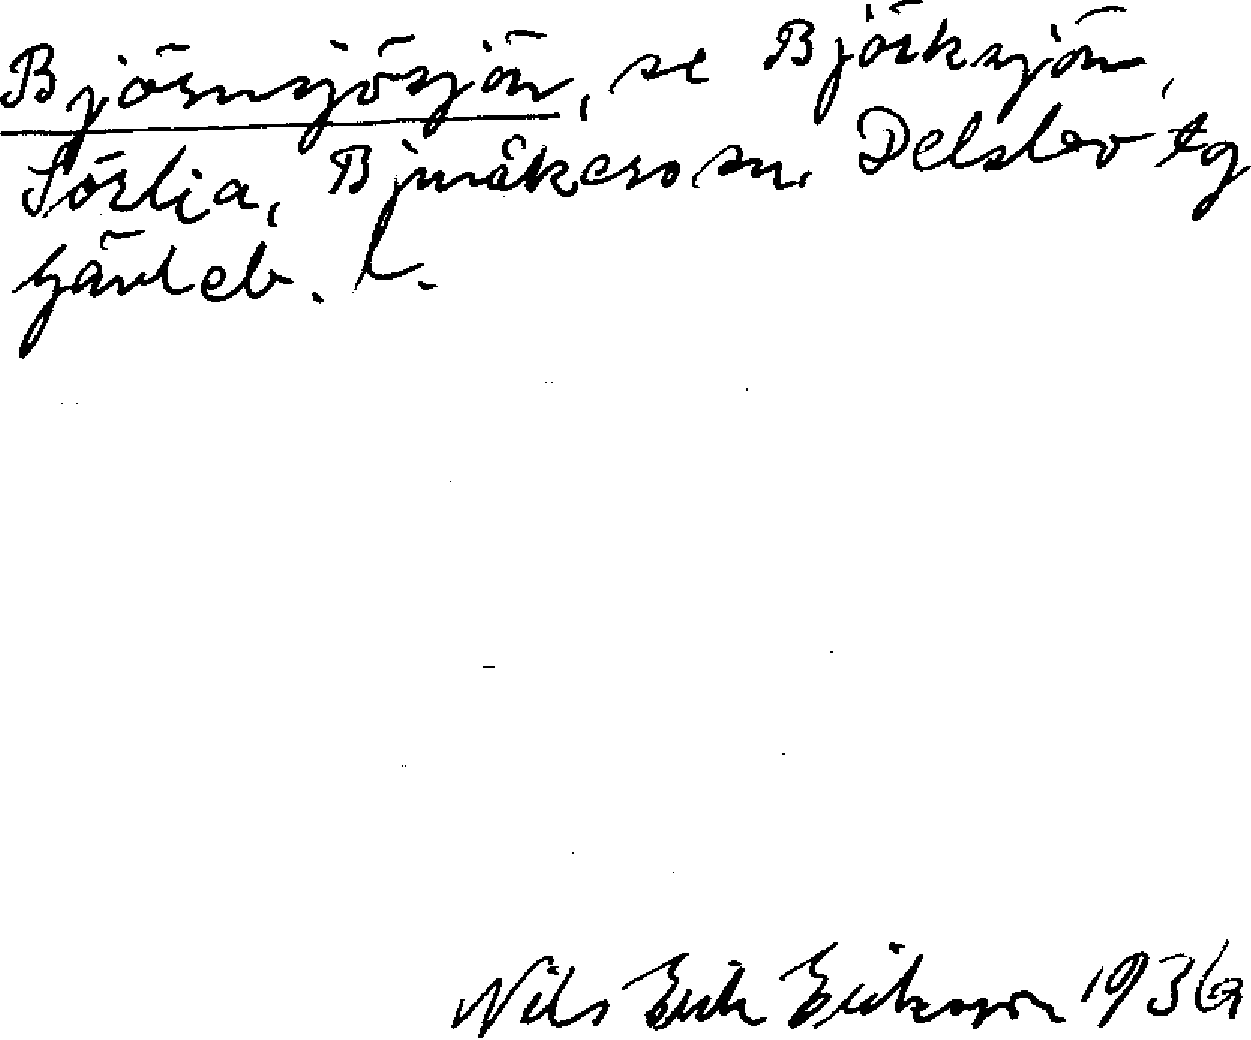 Björnsjösjön, se Björksjön,
Sörlia, Bjuråkers sn. Delsbo tg
Gävleb. l.
Nils Erik Eriksson 1936